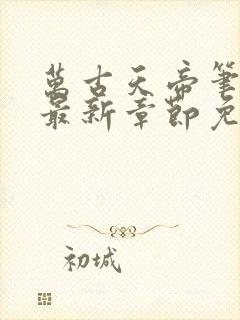 萬古天帝筆
最新章節免
初城